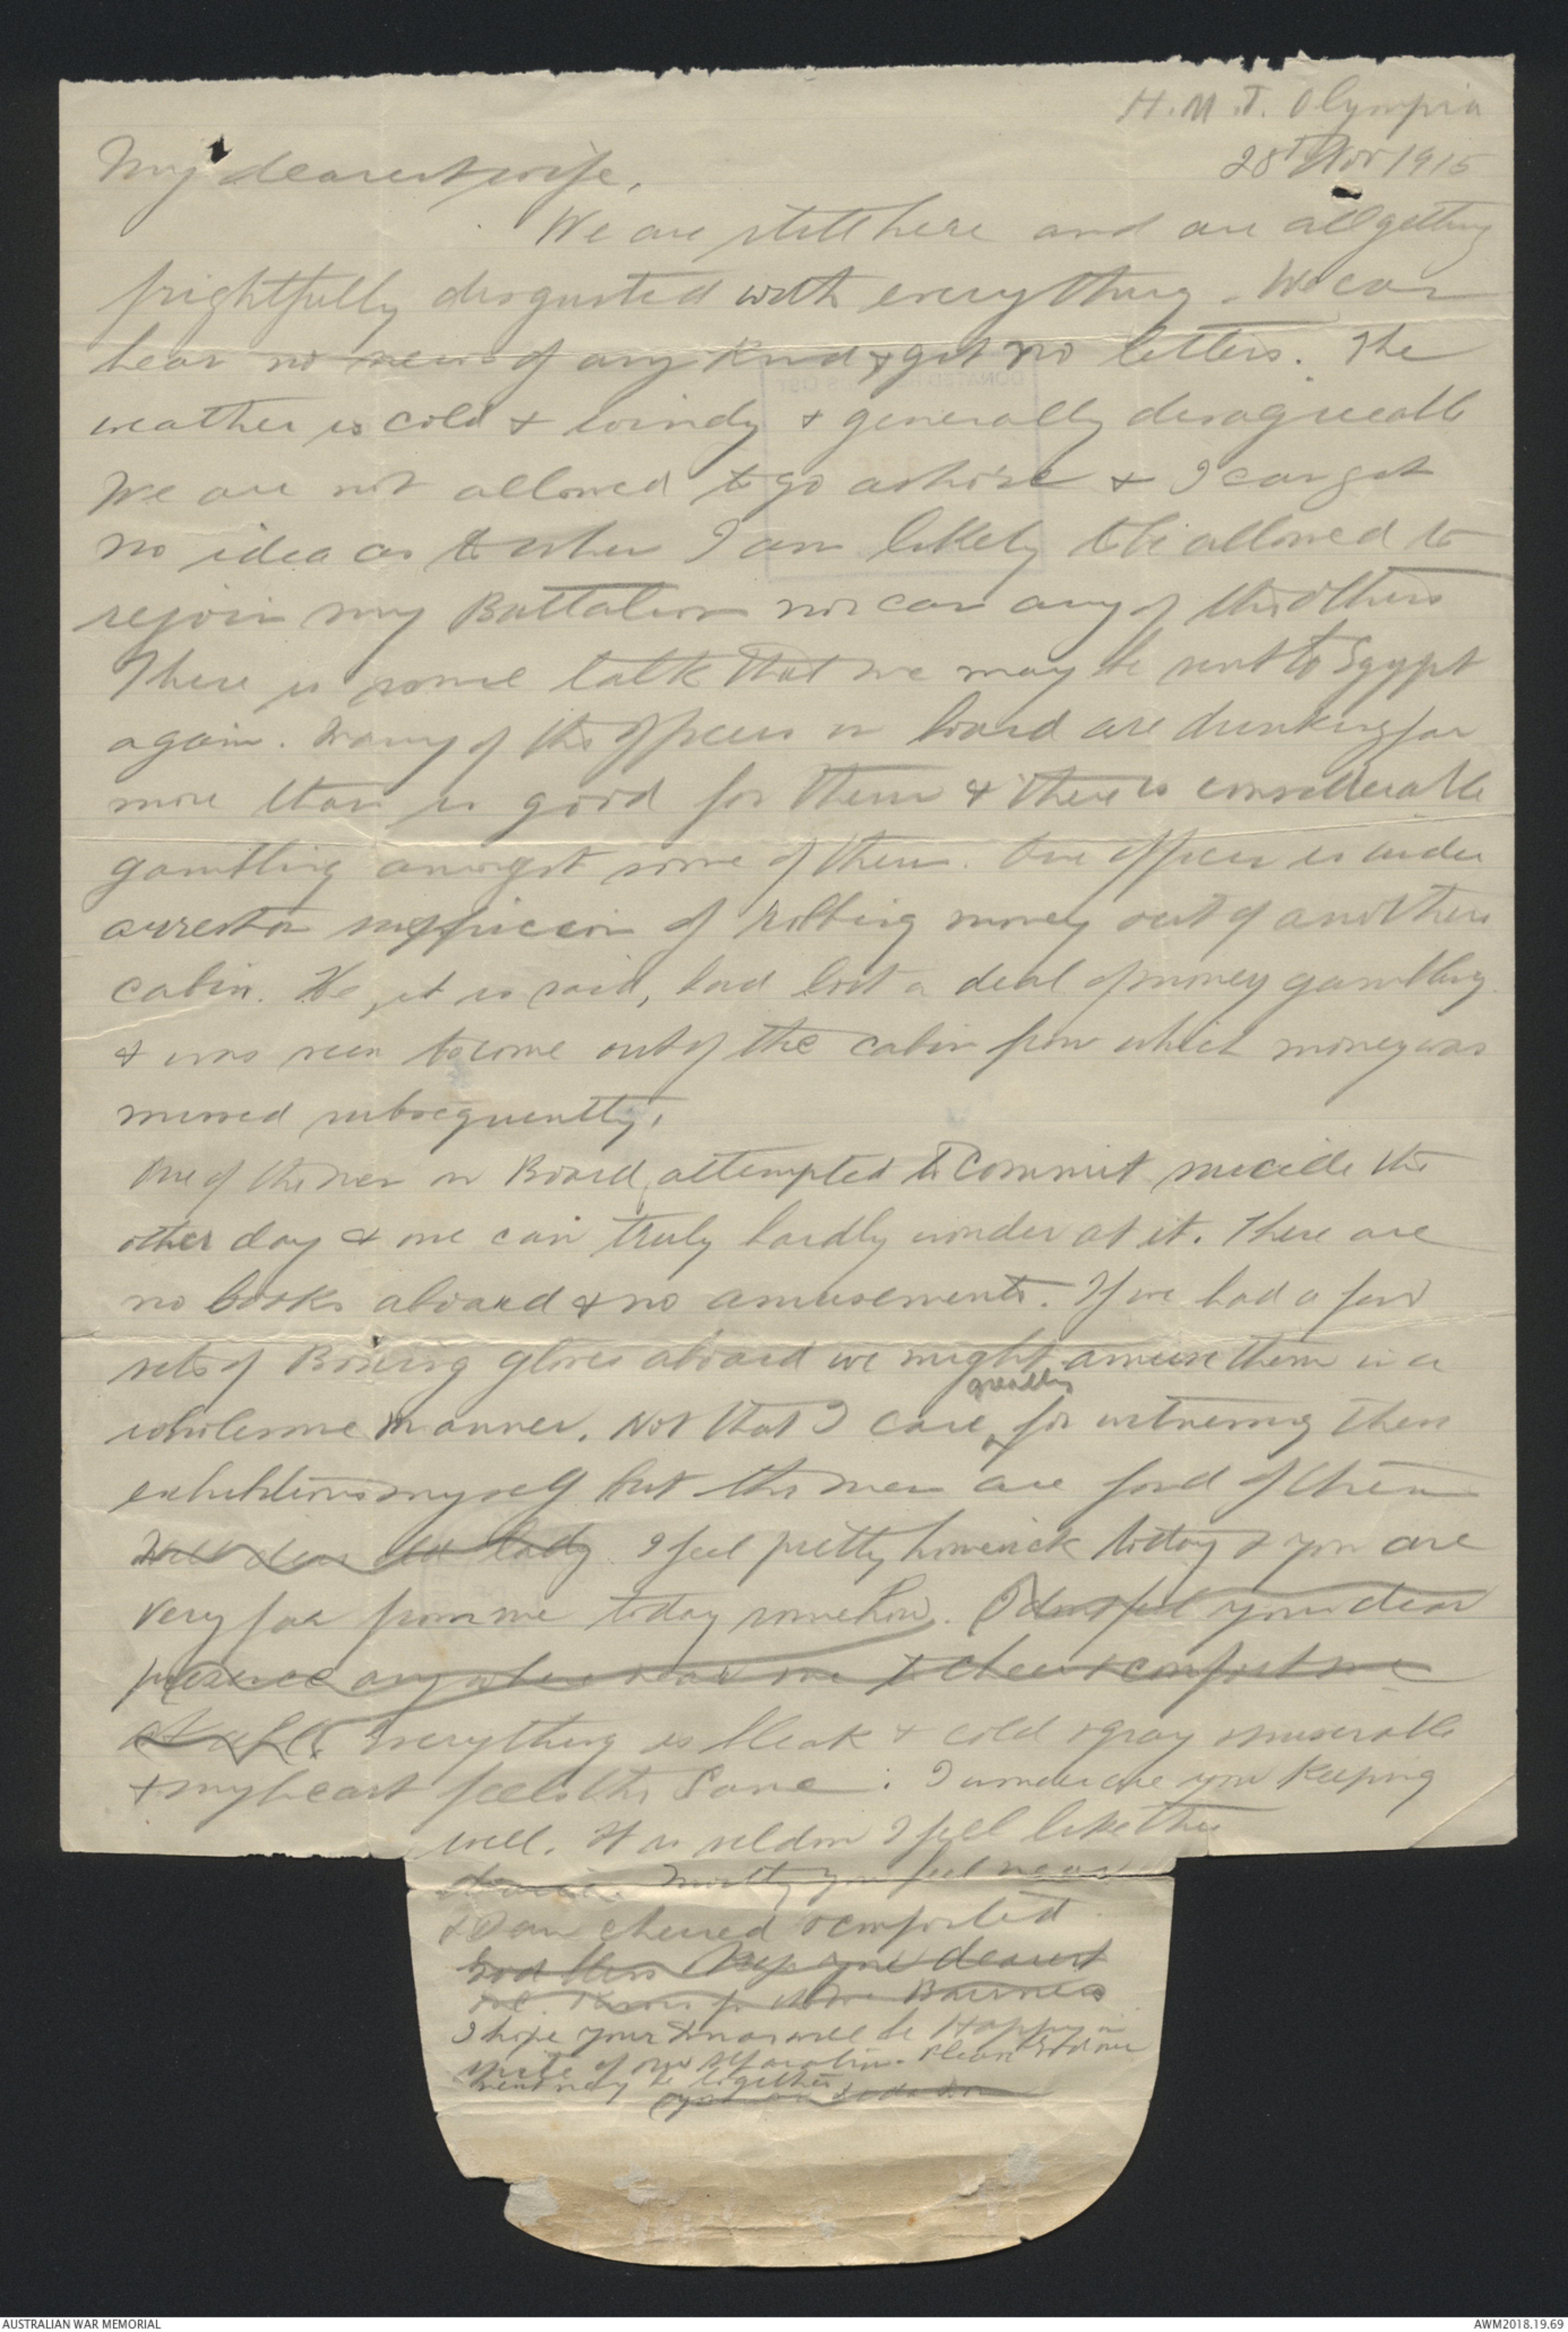 H.M.T. Olympia
28th Nov 1915
My dearest wife,
We are still here and are all getting
frightfully disgusted with everything. We can
hear no news of any kind & get no letters. The
weather is cold & windy & generally disagreeable
We are not allowed to go ashore & I can get
no idea as to when I am likely to be allowed to
rejoin my Battalion nor can any of the others
There is some talk that we may be sent to Egypt
again. Many of the officers on board are drinking far
more than is good for them & there is considerable
gambling amongst some of them. One officer is under
arrest on suspicion of robbing money out of anothers
cabin. He, it is said, had lost a deal of money gambling
& was seen to come out of the cabin from which money was
missed subsequently.
One of the men on Board attempted to commit suicide the
other day & one can truly hardly wonder at it. There are
no books aboard & no amusements. If we had a few
sets of Boxing gloves aboard we might amuse them in a
wholesome manner. Not that I care greatly for witnessing these
exhibitions myself but the men are fond of them
Well dear old lady I feel pretty homesick today & you are
very far from me today somehow. I dont feel your dear
presence anywhere near me to cheer & comfort me
at all. Everything is bleak & cold & gray & miserable
& my heart feels the same. I wonder are you keeping
well. It is seldom I feel like this
Mostly you feel near
& I am cheered & comforted.
God bless & keep you dearest
one. Kisses for the Bairnies
I hope your Xmas will be Happy in
spite of our separation. Please God our
next may be together